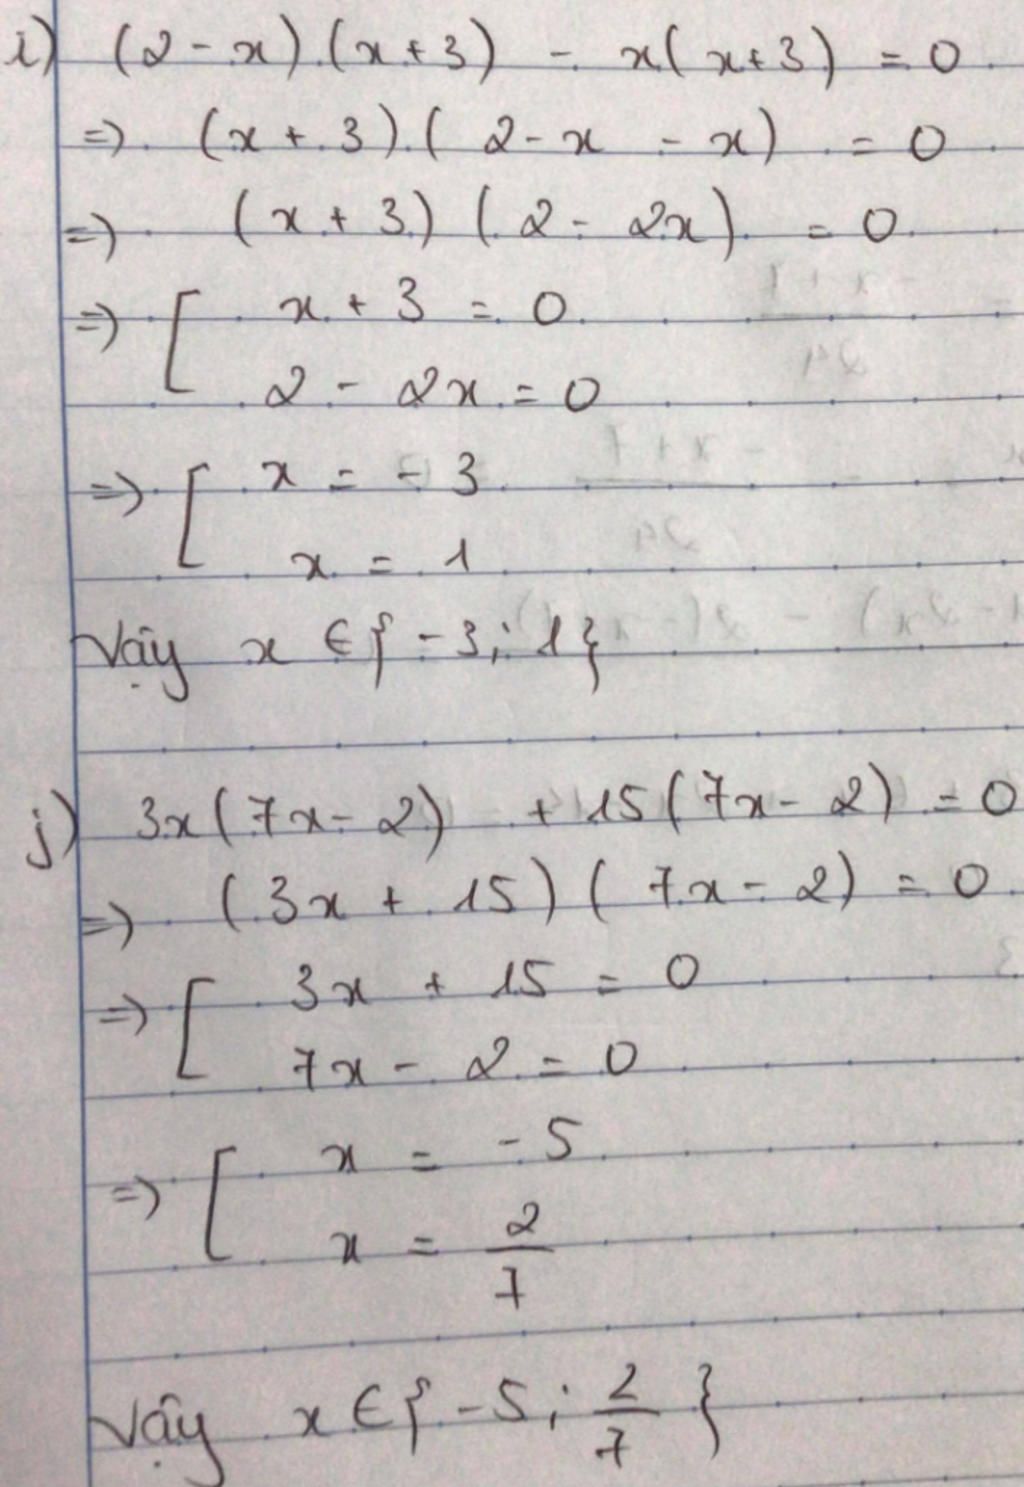 i) (2 - x).(x + 3) - x(x+3) = 0
=> (x + 3).(2 - x - x) = 0
=> (x + 3)(2 - 2x) = 0
=> [ x + 3 = 0
2 - 2x = 0
=> [ x = - 3
x = 1
Vậy x ∈ { - 3; 1}
j) 3x(7x - 2) + 15(7x - 2) = 0
=> (3x + 15)(7x - 2) = 0
=> [ 3x + 15 = 0
7x - 2 = 0
=> [ x = -5
x = 2/7
Vậy x ∈ { -5; 2/7 }